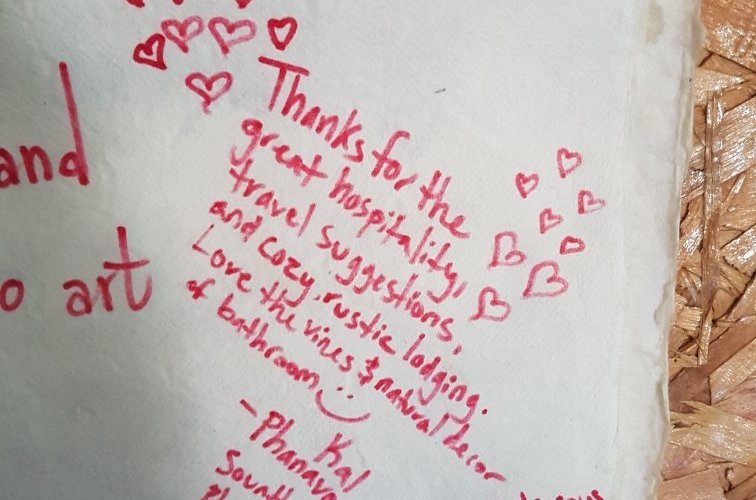 and
art
Thanks for the
great hospitality,
travel suggestions,
and cozy, rustic lodging.
Love the vines & natural decor
of bathroom
- Kal
Phanava